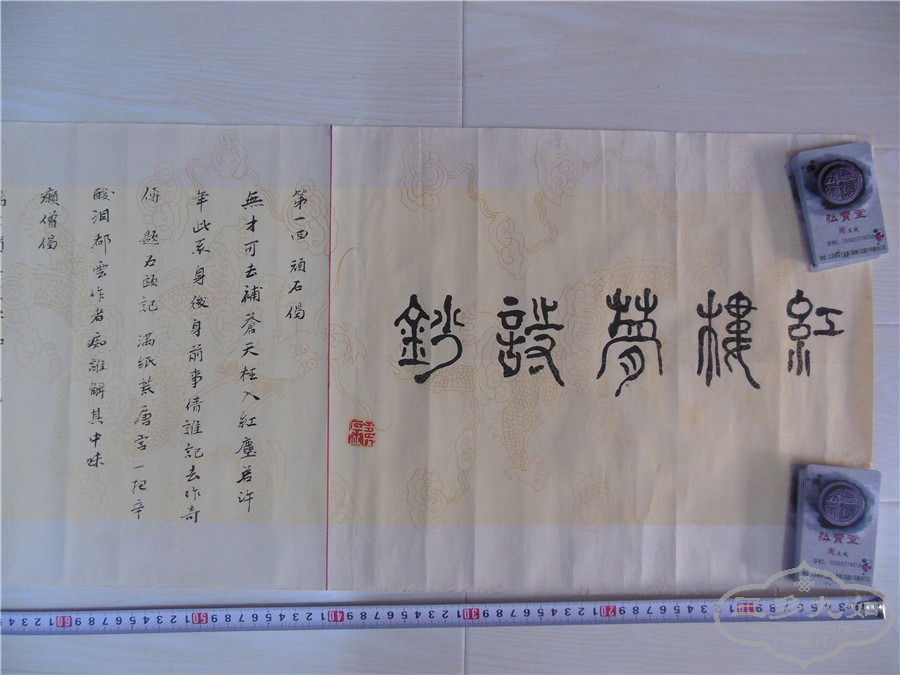 紅樓夢詩鈔
第一回 頑石偈
無才可去補蒼天枉入紅塵若許
年此系身後身前事倩誰記去作奇
傳 題石頭記 滿紙荒唐言一把辛
酸泪都雲作者痴誰解其中味
癩僧偈
弘賢堂
弘賢堂